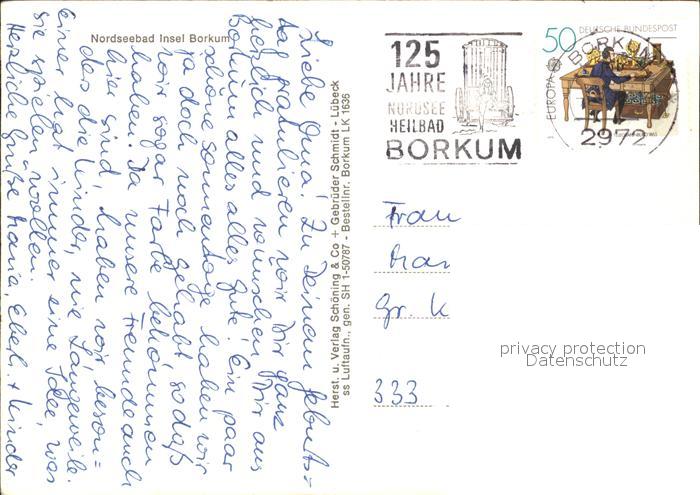 Nordseebad Insel Borkum
Liebe Oma! Zu Deinem Geburts=
tag gratulieren wir Dir ganz
herzlich und wünschen Dir aus
Borkum alles alles Gute! Ein paar
schöne Sonnentage haben wir
ja doch noch gehabt, so daß
wir sogar Farbe bekommen
haben. Da unsere Freunde auch
hier sind, haben wir, beson=
ders die Kinder, nie Langeweile.
Einer hat immer eine Idee, was
sie spielen wollen.
Herzliche Grüße Maria, Eberh. + Kinder
Herst. u. Verlag Schöning & Co + Gebrüder Schmidt - Lübeck
ss Luftaufn., gen. SH 1-50787 - Bestellnr. Borkum LK 1636
125
JAHRE
NORDSEE
HEILBAD
BORKUM
50 DEUTSCHE BUNDESPOST
EUROPA
BORKUM
2972
Frau
Mar
Gr. K
333
privacy protection
Datenschutz